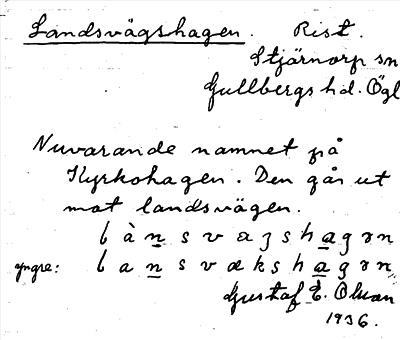 Landsvägshagen. Rist.
Stjärnorp sn
Gullbergs hd. Ögl
Nuvarande namnet på
Kyrkohagen. Den går ut
mot landsvägen.
làn̲svagsha̲gən
yngre: lan̲svæksha̲gən
Gustaf E. Olsson
1936.